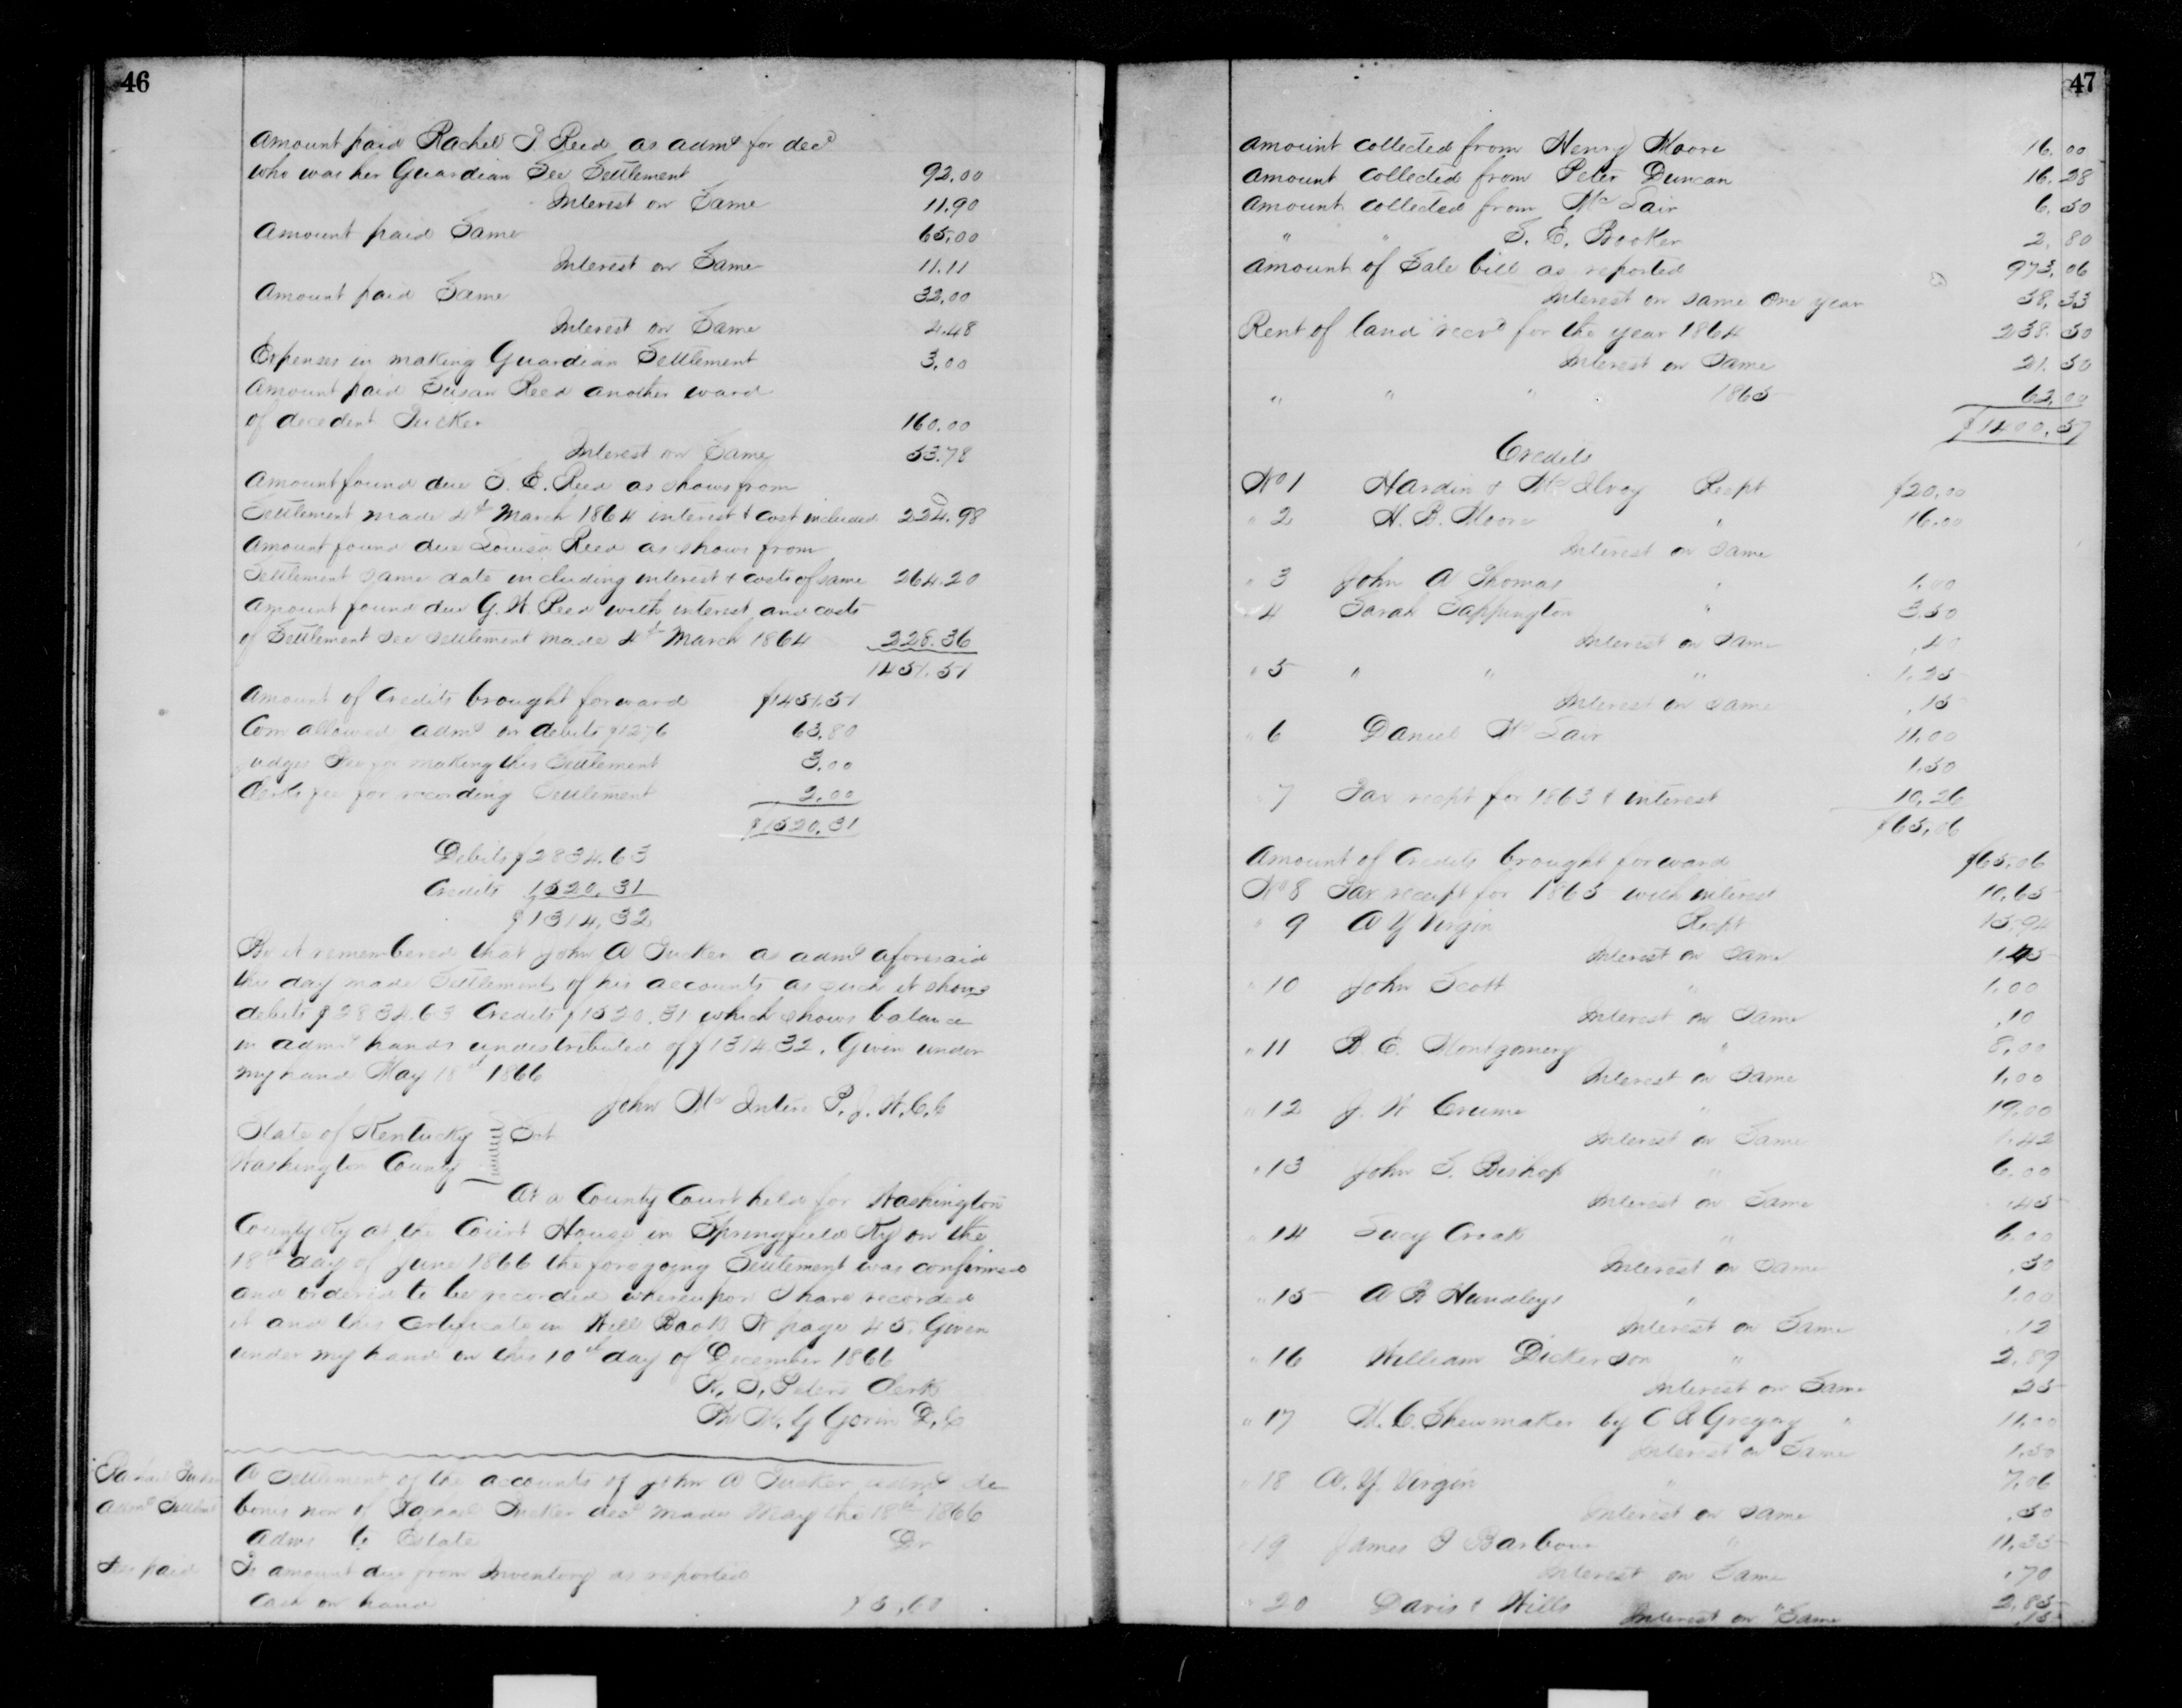 46
Amount paid Rachel I Reed as admr for decd
who was her Guardian See Settlement 92.00
Interest on Same 11.90
Amount paid Same 65.00
Interest on Same 11.11
Amount paid Same 32.00
Interest on Same 4.48
Expenses in making Guardian Settlement 3.00
Amount paid Susan Reed another ward
of decedent Tucker 160.00
Interest on Same 53.78
Amount found due S. E. Reed as shows from
Settlement made 4th March 1864 interest & cost included 224.98
Amount found due Louisa Reed as shows from
Settlement same date including interest & costs of same 264.20
Amount found due G. W. Reed with interest and costs
of Settlement see settlement made 4th March 1864 228.36
1451.51
Amount of Credits brought forward $1451.51
Com allowed admr on debits $1276 63.80
Judges fee for making this Settlement 3.00
Clerks fee for recording Settlement 2.00
$1520.31
Debits $2834.63
Credits 1520.31
$1314.32
Be it remembered that John A Tucker as admr aforesaid
this day made Settlement of his accounts as such it shows
debits $2834.63 Credits $1520.31 which shows balance
in admrs hands undistributed of $1314.32. Given under
my hand May 18th 1866
John McIntire P. J. W. C. C
State of Kentucky } Sct
Washington County
At a County Court held for Washington
County Ky at the Court House in Springfield Ky on the
18th day of June 1866 the foregoing Settlement was confirmed
and ordered to be recorded whereupon I have recorded
it and this certificate in Will Book N page 45. Given
under my hand on this 10th day of December 1866
W. S. Peters Clerk
By W. Y Gorin D. C
Tucker
Admr Settlmt
A Settlement of the accounts of John A Tucker admr de
bonis non of Tucker decd made May the 18th 1866
Admr to Estate Dr
fee paid
To amount due from Inventory as reported
Cash on hand $5.60
47
Amount collected from Henry Moore 16.00
Amount collected from Peter Duncan 16.28
Amount collected from McLair 6.50
" " S. E. Booker 2.80
Amount of Sale bill as reported 973.06
Interest on same one year 58.33
Rent of land recd for the year 1864 238.50
Interest on Same 21.50
" " " 1865 62.00
$1400.57
Credits
No 1 Hardin & McElroy Recpt $20.00
" 2 H. B. Moore " 16.00
Interest on same
" 3 John A Thomas " 1.00
" 4 Sarah Sappington " 3.50
Interest on same .40
" 5 " " " 1.25
Interest on same .15
" 6 Daniel McLair 11.00
1.50
" 7 Tax recpt for 1863 & interest 10.26
$65.06
Amount of Credits brought forward $65.06
No 8 Tax receipt for 1865 with interest 10.65
" 9 A Y Virgin Recpt 15.94
Interest on same 1.45
" 10 John Scott " 1.00
Interest on same .10
" 11 B. E. Montgomery " 8.00
Interest on Same 1.00
" 12 J. W Crume " 19.00
Interest on Same 1.42
" 13 John S. Bishop " 6.00
Interest on Same .45
" 14 Lucy Croak " 6.00
Interest on Same .30
" 15 A R Hundleys " 1.00
Interest on Same .12
" 16 William Dickerson " 2.89
Interest on Same 25
" 17 M. C. Shewmaker by C R Gregory " 11.00
Interest on Same 1.50
" 18 A. Y. Virgin " 7.06
Interest on same .50
" 19 James I Barbour " 11.35
Interest on Same .70
" 20 Davis & Wills " 2.85
Interest on Same .15